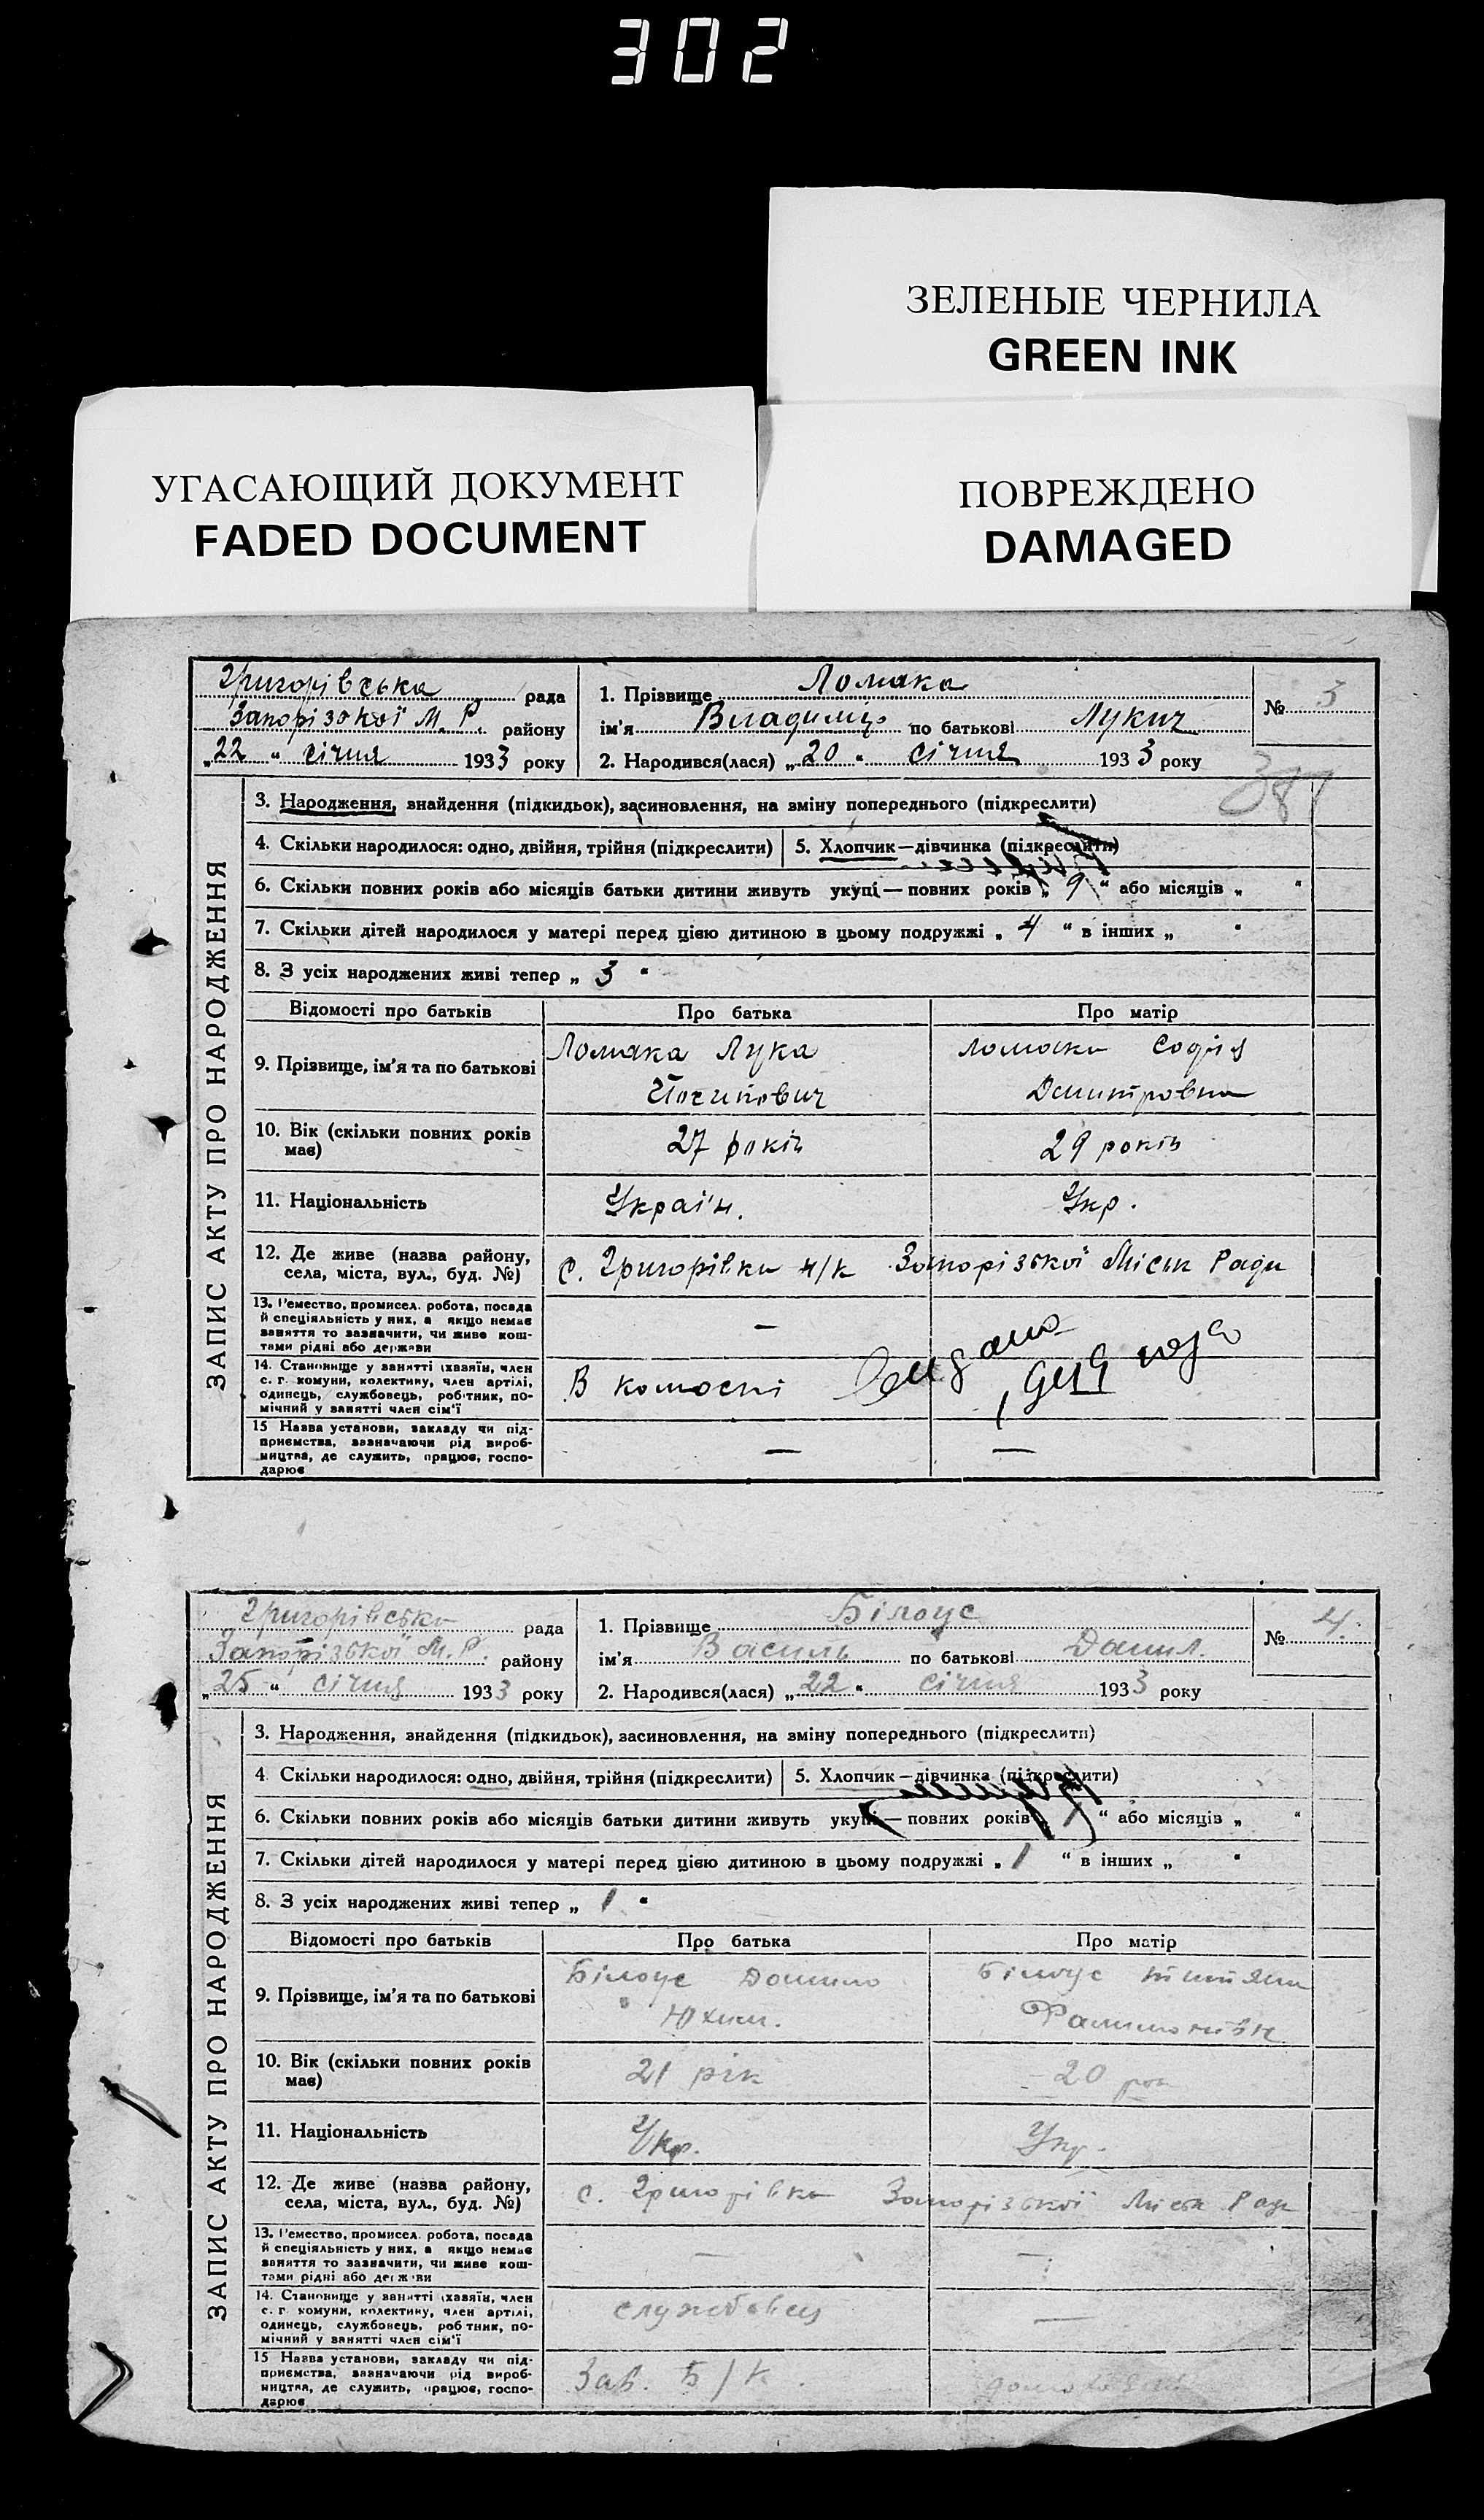 302
ЗЕЛЕНЫЕ ЧЕРНИЛА
GREEN INK
УГАСАЮЩИЙ ДОКУМЕНТ
FADED DOCUMENT
ПОВРЕЖДЕНО
DAMAGED
Григорівська рада
Запорізокої М. Р. району
„22 " січня 1933 року
1. Прізвище Ломака
ім'я Владимір по батькові Лукич
2. Народився(лася) „20 " січня 1933 року
№ 3
387
ЗАПИС АКТУ ПРО НАРОДЖЕННЯ
3. Народження, знайдення (підкидьок), засиновлення, на зміну попереднього (підкреслити)
4. Скільки народилося: одно, двійня, трійня (підкреслити)
5. Хлопчик—дівчинка (підкреслити)
6. Скільки повних років або місяців батьки дитини живуть укупі — повних років „ 9 " або місяців „ "
7. Скільки дітей народилося у матері перед цією дитиною в цьому подружжі „ 4 " в інших „ "
8. З усіх народжених живі тепер „ 3 "
Відомості про батьків Про батька Про матір
9. Прізвище, ім'я та по батькові
Ломака Лука
Йосипович
Ломака Софія
Дмитровна
10. Вік (скільки повних років має)
27 років
29 років
11. Національність
Україн.
Укр.
12. Де живе (назва району,
села, міста, вул., буд. №)
с. Григорівка н/к Запорізької Міськ Ради
13. Ремество, промисел. робота, посада
й спеціяльність у них, а якщо немає
заняття то зазначити, чи живе кош-
тами рідні або держави
—
14. Становище у занятті (хазяїн, член
с. г. комуни, колективу, член артілі,
одинець, службовець, робітник, по-
мічний у занятті член сім'ї
В
15 Назва установи, закладу чи під-
приємства, зазначаючи рід вироб-
ництва, де служить, працює, госпо-
дарює
— —
Григорівська рада
Запорізької М. Р. району
„25 " січня 1933 року
1. Прізвище Білоус
ім'я Василь по батькові Данил.
2. Народився(лася) „22 " січня 1933 року
№ 4.
ЗАПИС АКТУ ПРО НАРОДЖЕННЯ
3. Народження, знайдення (підкидьок), засиновлення, на зміну попереднього (підкреслити)
4. Скільки народилося: одно, двійня, трійня (підкреслити)
5. Хлопчик—дівчинка (підкреслити)
6. Скільки повних років або місяців батьки дитини живуть укупі — повних років „ " або місяців „ "
7. Скільки дітей народилося у матері перед цією дитиною в цьому подружжі „ 1 " в інших „ "
8. З усіх народжених живі тепер „ 1 "
Відомості про батьків Про батька Про матір
9. Прізвище, ім'я та по батькові
Білоус Данило
Юхим.
Білоус
10. Вік (скільки повних років має)
21 рік
20 рок
11. Національність
Укр.
Укр.
12. Де живе (назва району,
села, міста, вул., буд. №)
с. Григорівка Запорізької Міськ Рад
13. Ремество, промисел. робота, посада
й спеціяльність у них, а якщо немає
заняття то зазначити, чи живе кош-
тами рідні або держави
— —
14. Становище у занятті (хазяїн, член
с. г. комуни, колективу, член артілі,
одинець, службовець, робітник, по-
мічний у занятті член сім'ї
службовец —
15 Назва установи, закладу чи під-
приємства, зазначаючи рід вироб-
ництва, де служить, працює, госпо-
дарює
Зав. Б/К.